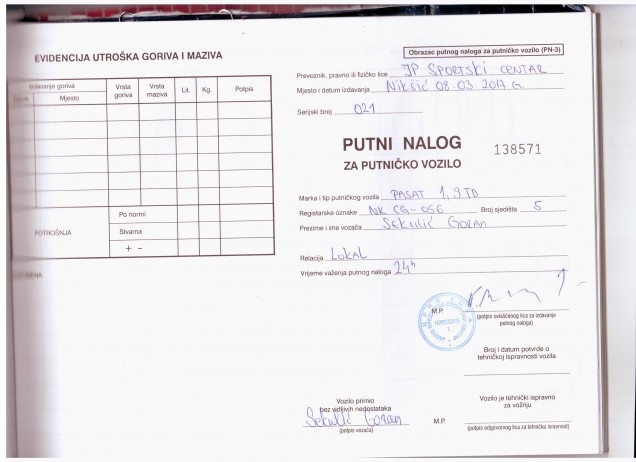 EVIDENCIJA UTROŠKA GORIVA I MAZIVA
Izdavanje goriva
Mjesto
Vrsta goriva
Vrsta maziva
Lit.
Kg.
Potpis
POTROŠNJA
Po normi
Stvarna
+ -
Obrazac putnog naloga za putničko vozilo (PN-3)
Prevoznik, pravno ili fizičko lice JP SPORTSKI CENTAR
Mjesto i datum izdavanja NIKŠIĆ 08.03.2017 G.
Serijski broj 021
PUTNI NALOG
ZA PUTNIČKO VOZILO
138571
Marka i tip putničkog vozila PASAT 1,9 TD
Registarske oznake NK CG-056 Broj sjedišta 5
Prezime i ime vozača SEKULIĆ GORAN
Relacija LOKAL
Vrijeme važenja putnog naloga 24h
M.P.
(potpis ovlašćenog lica za izdavanje
putnog naloga)
Broj i datum potvrde o
tehničkoj ispravnosti vozila
Vozilo primio
bez vidljivih nedostataka
Sekulić Goran
(potpis vozača)
Vozilo je tehnički ispravno
za vožnju
M.P.
(potpis odgovornog lica za tehničku ispravnost)